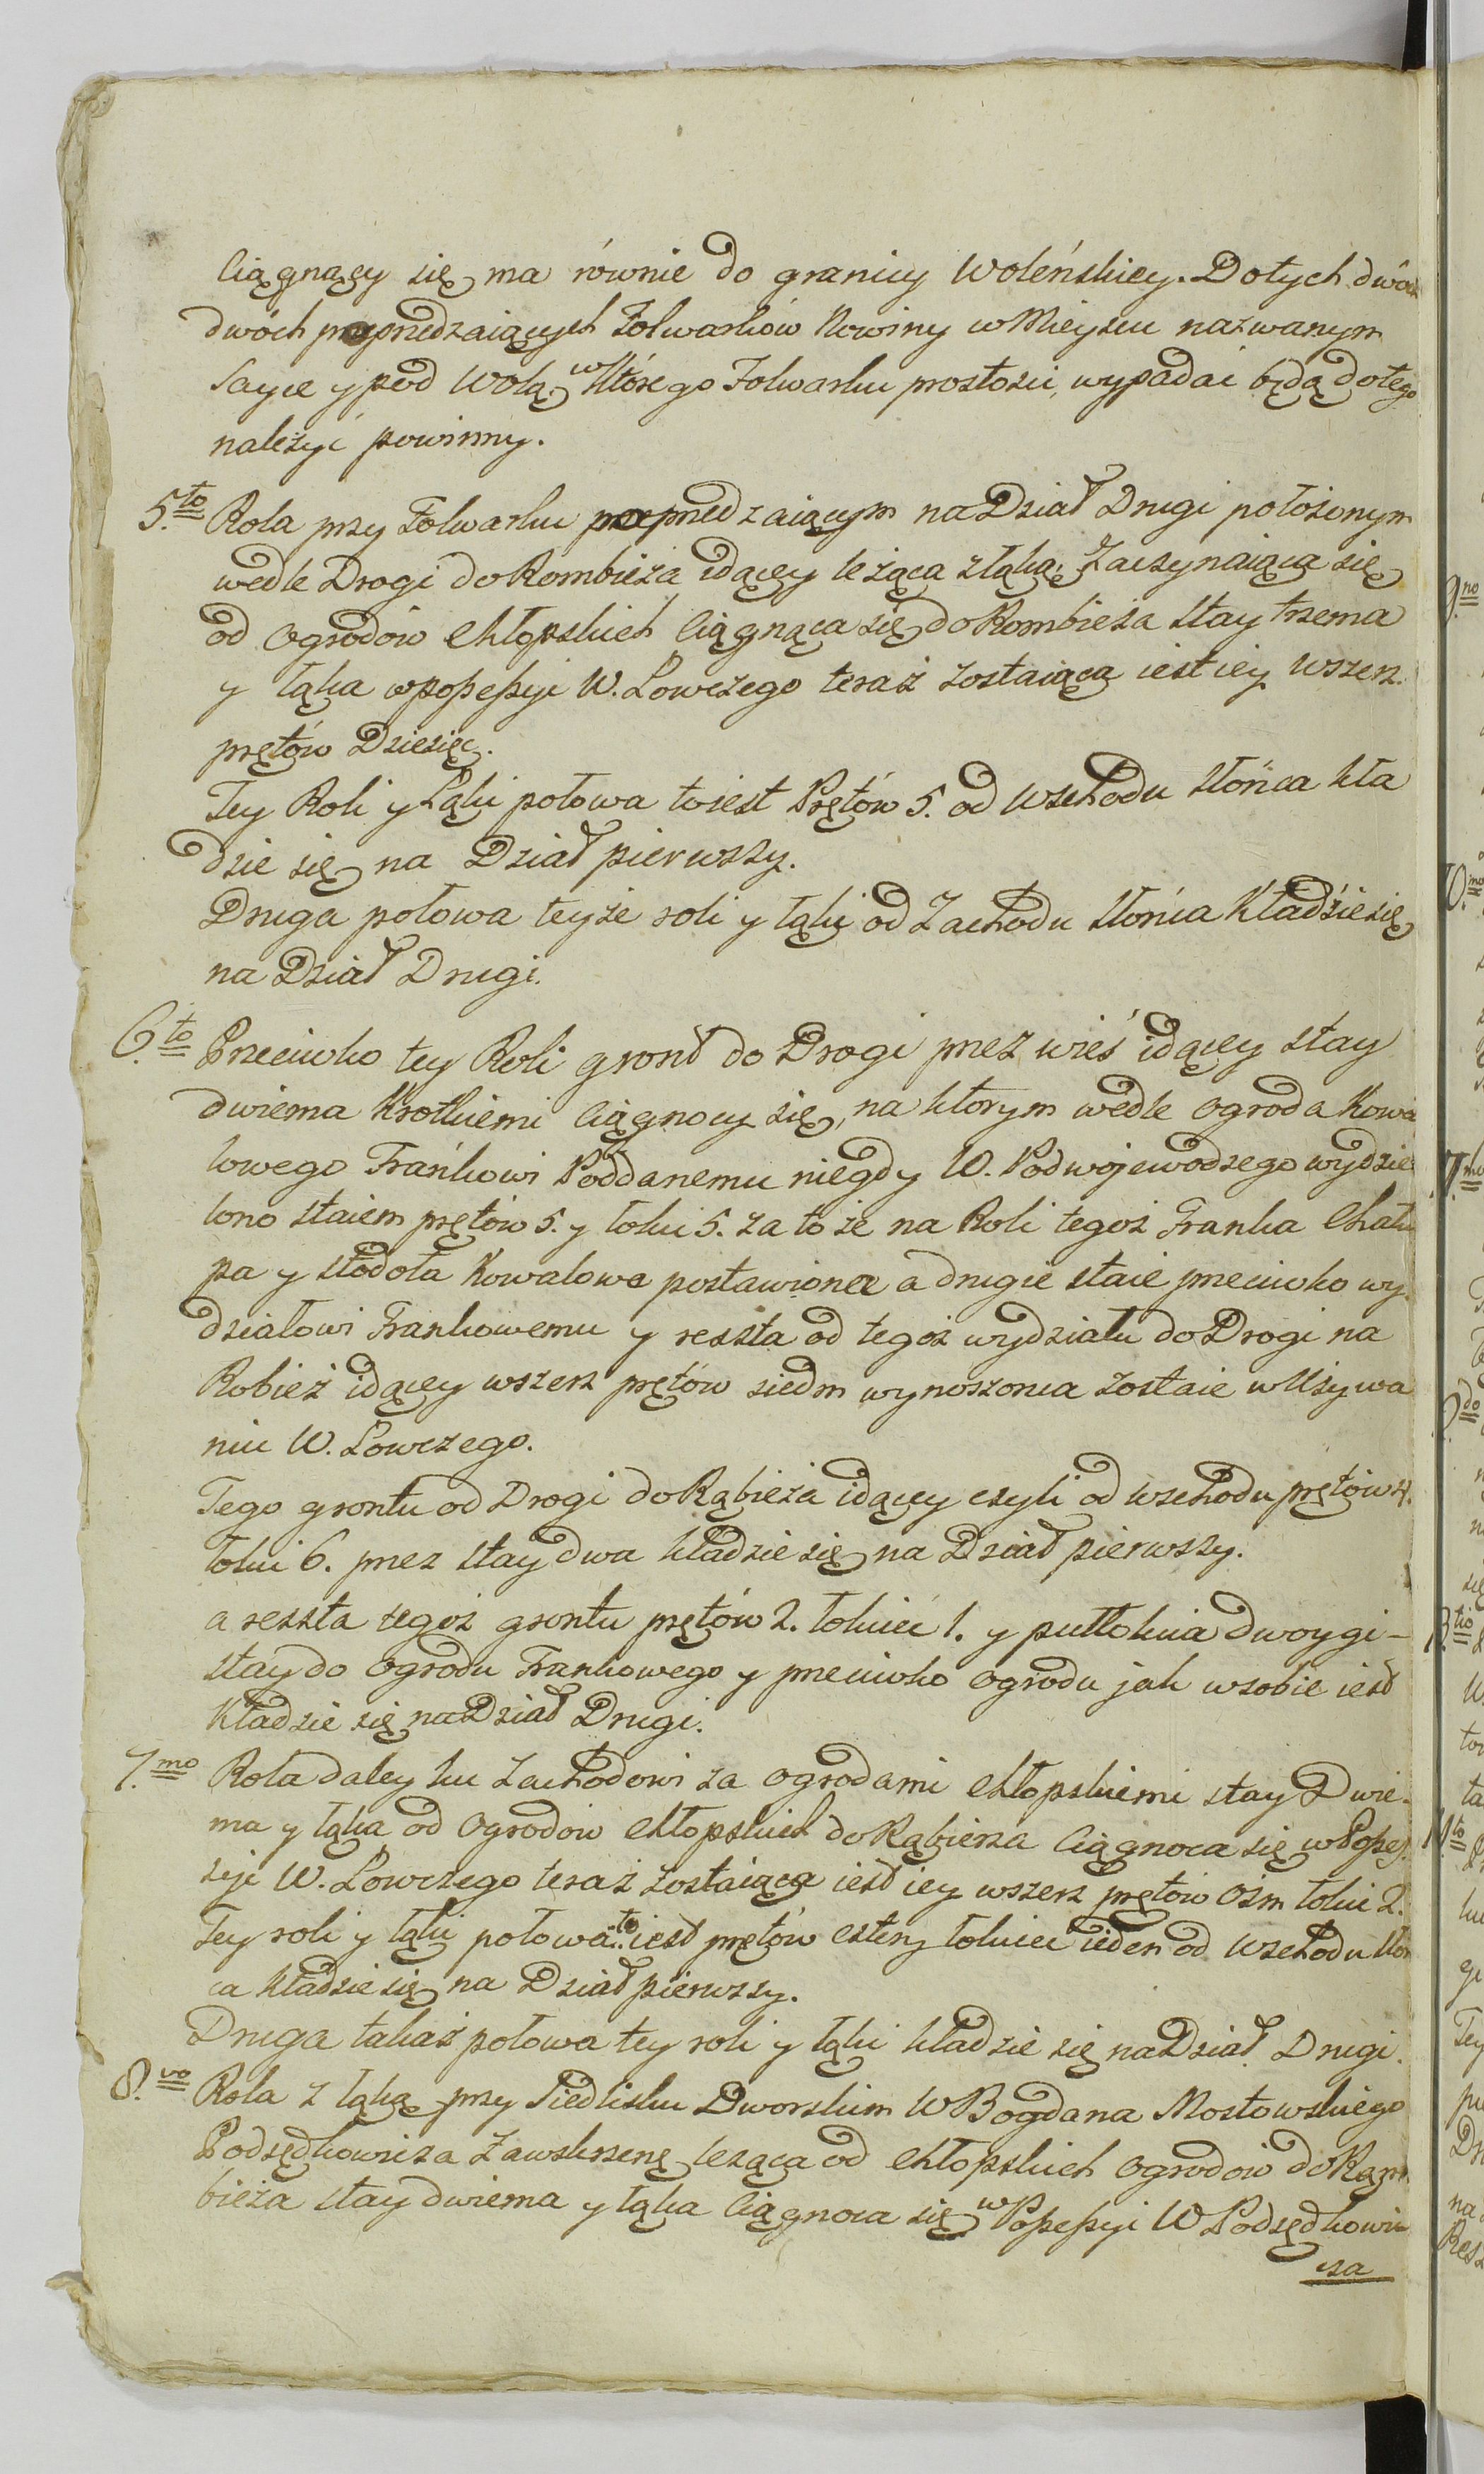 ciągnący się ma równie do granicy Woleńskiey. Do tych dwóch
dwóch poprzedzaiących Folwarków Nowiny w Mieyscu nazwanym
Sayce y pod Wolą w którego Folwarku prostości, wypadać będą do tego
należyć powinny.
5.to Rola przy Folwarku poprzedzaiącym na Dział Drugi położonym
wedle Drogi do Rombieża idącey leżąca z łąką, Zaczynaiąca się
od Ogrodów Chłopskich ciągnąca się do Rombieża stay trzema
y łąka w possessyi W. Łowczego teraz zostaiąca iest iey wszerz
prętów Dziesięć.
Tey Roli y Łąki połowa to iest Prętów 5. od Wschodu słońca kła
dzie się na Dział pierwszy.
Druga połowa teyże roli y łąki od Zachodu słońca kładzie się
na Dział Drugi.
6.to Przeciwko tey Roli gront do Drogi przez wieś idącey stay
dwiema krotkiemi ciągnocy się, na ktorym wedle ogroda Kowa
lowego Frańkowi Poddanemu niegdy W. Podwojewodzego wydzie
lono staiem prętów 5. y łokci 5. za to że na Roli tegoż Franka Chału
pa y stodoła Kowalowa postawiona a drugie staie przeciwko wy
działowi Frankowemu y reszta od tegoż wydziału do Drogi na
Robież idącey wszerz prętów siedm wynoszonca zostaie w Używa
niu W. Łowczego.
Tego grontu od Drogi do Rąbieża idącey czyli od wschodu prętów 4.
łokci 6. przez stay dwa kładzie się na Dział pierwszy.
a reszta tegoż grontu prętów 2. łokieć 1. y pułłokcia dwoygi-
stay do Ogrodu Frankowego y przeciwko ogrodu jak w sobie iest
kładzie się na Dział Drugi.
7.mo Rola daley ku Zachodowi za ogrodami Chłopskiemi stay Dwie-
ma y łąka od Ogrodow Chłopskich do Rąbierza ciągnoca się w Posses
syi W. Łowczego teraz zostaiąca iest iey wszerz prętow Ośm łokci 2.
Tey roli y łąki połowa to iest prętów cztery łokiec ieden od Wschodu słoń
ca kładzie się na Dział pierwszy.
Druga takaż połowa tey roli y łąki kładzie się na Dział Drugi.
8.vo Rola z łąką przy Siedlisku Dworskim W Bogdana Mostowskiego
Podsędkowicza Zawskrzenę leząca od Chłopskich ogrodow do Rąm
bieża stay dwiema y łąka ciągnoca się w Possessyi W Podsędkowi-
cza